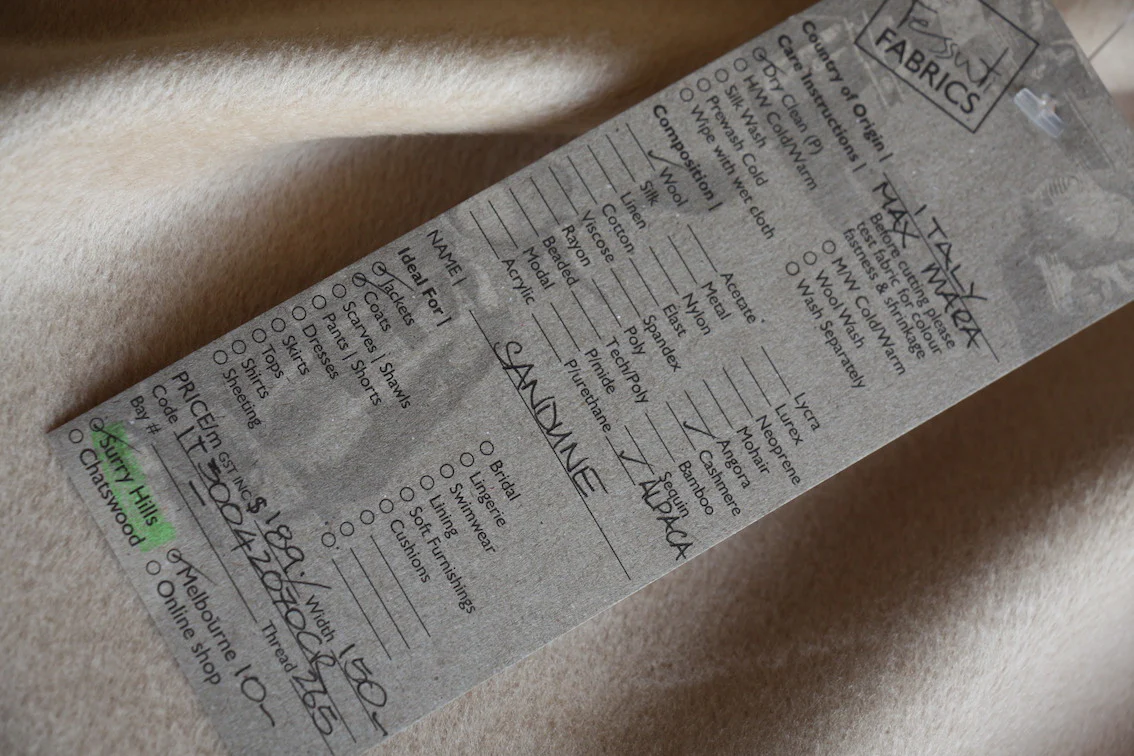 Tessuti
FABRICS
Country of Origin | ITALY
Care Instructions | MAX MARA
Dry Clean (P)
H/W Cold/Warm
Silk Wash
Prewash Cold
Wipe with wet cloth
Before cutting please
test fabric for colour
fastness & shrinkage
M/W Cold/Warm
Wool Wash
Wash Separately
Composition |
✓ Wool
Silk
Linen
Cotton
Viscose
Rayon
Beaded
Modal
Acrylic
Acetate
Metal
Nylon
Elast
Spandex
Poly
Tech/Poly
P/mide
P/urethane
Lycra
Lurex
Neoprene
Mohair
✓ Angora
Cashmere
Bamboo
Sequin
✓ ALPACA
NAME |
Ideal For |
Jackets
Coats
Scarves | Shawls
Pants | Shorts
Dresses
Skirts
Tops
Shirts
Sheeting
Bridal
Lingerie
Swimwear
Lining
Soft Furnishings
Cushions
PRICE/m GST INC $189./ Width 150
Code Thread 265
Bay #
Surry Hills
Chatswood
Melbourne 10
Online shop